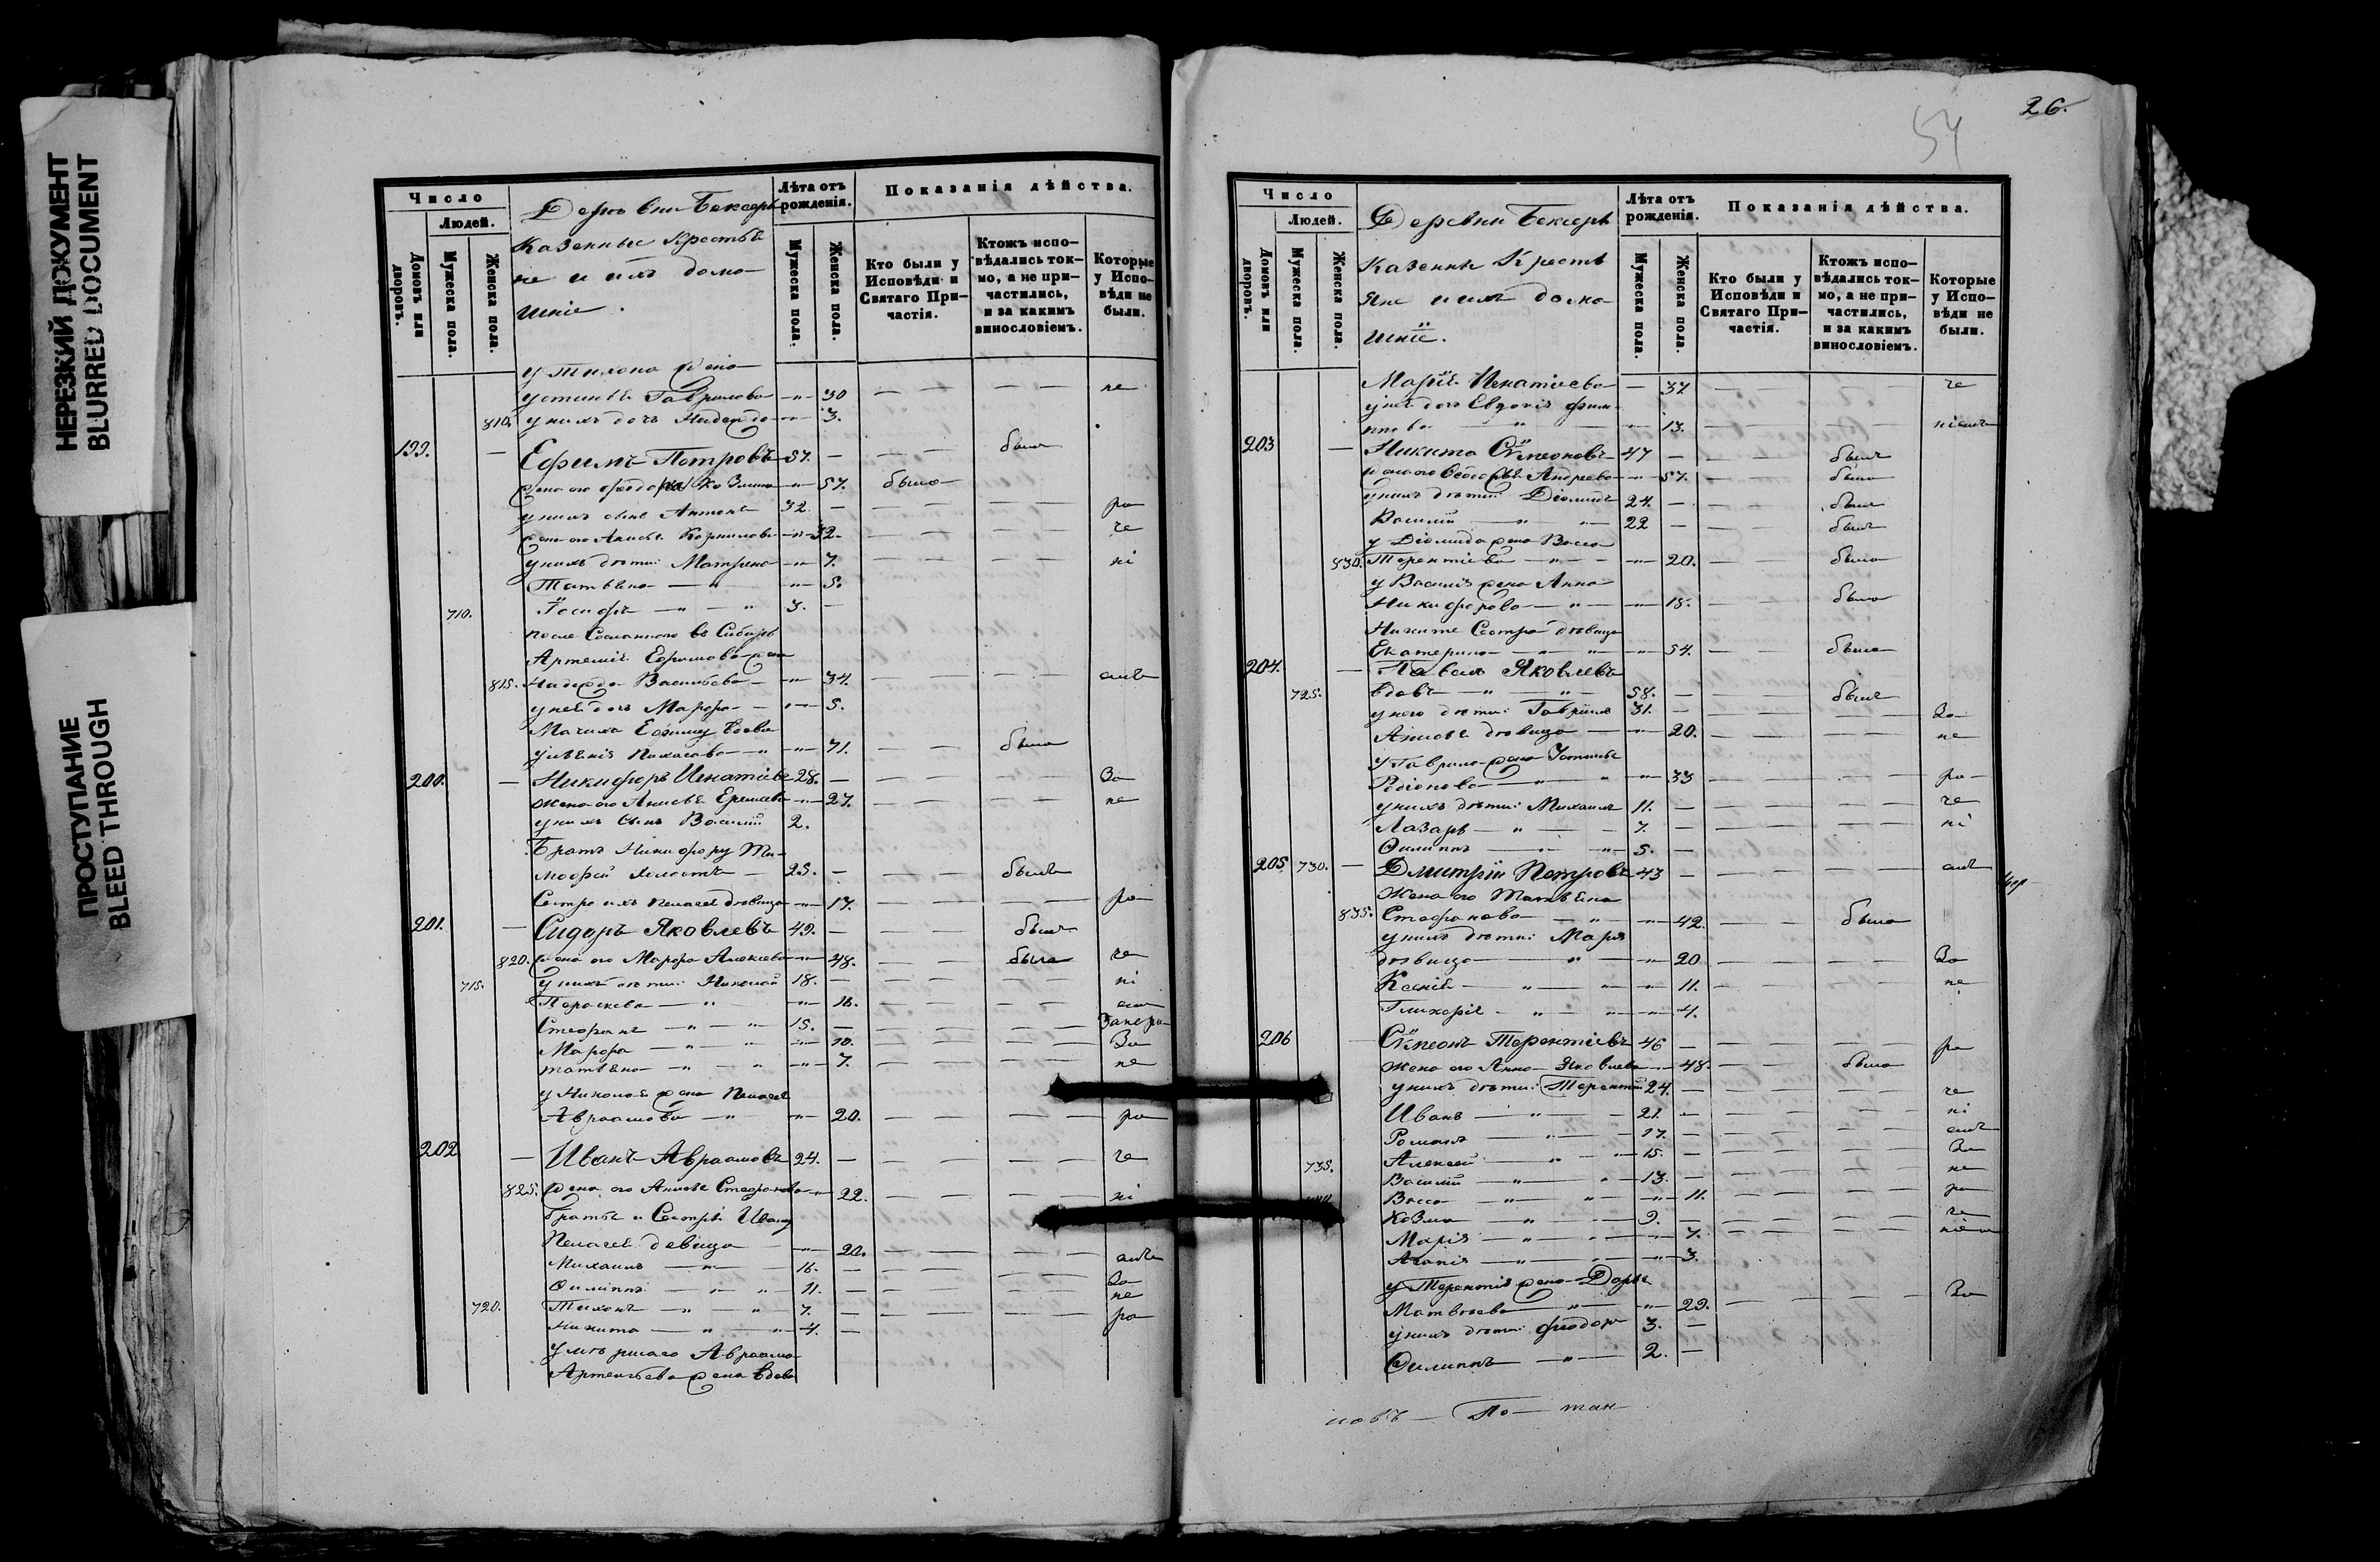 НЕРЕЗКИЙ ДОКУМЕНТ
BLURRED DOCUMENT
ПРОСТУПАНИЕ
BLEED THROUGH
Число
Людей.
Домовъ или дворовъ.
Мужеска пола.
Женска пола.
Деревни Бексеръ
Казенные Крестья
не и ихъ дома
шніе.
Лѣта отъ рожденія.
Мужеска пола.
Женска пола.
Показанія дѣйства.
Кто были у Исповѣди и Святаго При-
частія.
Ктожъ испо-
вѣдались ток-
мо, а не при-
частились,
и за какимъ
винословіемъ.
Которые
у Испо-
вѣди не
были.
у Тихона жена
Устинья Гаврилова 30 не
810. у нихъ дочь Надежда 3.
199. Ефимъ Петровъ 57. былъ
жена его Козмина 57. была
у нихъ сынъ Антонъ 32. ра
жена его Анисья Корнилова 32. че
у нихъ дѣти: Матрена 7. ні
Татьяна 5.
710. Іосифъ 3.
после Сосланного въ Сибирь
Артемія Ефимова жена
815. Надежда Васильева 34. емъ
у ней дочь Марфа 5.
Мачиха Ефиму вдова
71. была
200. Никифоръ Игнатіевъ 28. За
жена его Анисья 27. не
у нихъ сынъ Василій 2.
Братъ Никифору Ти-
мофей холостъ 25. былъ
Сестра ихъ Пелагея дѣвица 17. ра
201. Сидоръ Яковлевъ 49. былъ
820. жена его Марфа Алексеева 48. была че
715. у нихъ дѣти: Николай 18. ні
Параскева 16. емъ
Стефанъ 15. Запера
Марфа 10. За
Татьяна 7. не
у Николая жена Пелагея
Авраамова 20. ра
202 Иванъ Авраамовъ 24. че
825. жена его Анисья Стефанова 22. ні
братья и Сестра Ивану
Пелагея девица 20. емъ
Михаилъ 16.
Филиппъ 11. За
720. Тихонъ 7. не
Никита 4. ра
умершаго Авраама
Артемьева жена вдова
26.
54
Число
Людей.
Домовъ или дворовъ.
Мужеска пола.
Женска пола.
Деревни Бексеръ
Казенные Кресть
яне и ихъ дома
шніе.
Лѣта отъ рожденія.
Мужеска пола.
Женска пола.
Показанія дѣйства.
Кто были у Исповѣди и Святаго При-
частія.
Ктожъ испо-
вѣдались ток-
мо, а не при-
частились,
и за какимъ
винословіемъ.
Которые
у Испо-
вѣди не
были.
Марія Игнатіева 37 че
у ней дочь Евдокія Фили-
ппова 13. ніемъ
203 Никита Сѵмеоновъ 47 былъ
жена его Андреева 57. была
у нихъ дѣти: Діомидъ 24. былъ
Василій 22 былъ
у Діомида жена Васса
830. Терентіева 20. была
у Василія жена Анна
Никифорова 18. была
Никите Сестра дѣвица
Екатерина 54. была
204. Павелъ Яковлевъ
725. вдовъ 58. былъ
у него дѣти: Гавріилъ 31. За
Анисья дѣвица 20. не
у Гаврила жена Устинья
Родіонова 33 ра
у нихъ дѣти: Михаилъ 11. че
Лазарь 7. ні
Филиппъ 5.
205 730. Дмитрій Петровъ 43 емъ
жена его Татьяна
835. Стефанова 42. была
у нихъ дѣти: Марія
дѣвица 20 За
Ксенія 11. не
Гликерія 4.
206 Сѵмеонъ Терентіевъ 46 ра
жена его Анна Яковлева 48. была
у нихъ дѣти: Терентій 24. че
Иванъ 21. ні
Романъ 17. емъ
735. Алексей 15. За
Василій 13. не
Васса 11. ра
Козма 9. че
Марія 7. ніемъ
Агапія 3.
у Терентія жена Дарья
Матвѣева 29. За
у нихъ дѣти: Феодоръ 3.
Филиппъ 2.